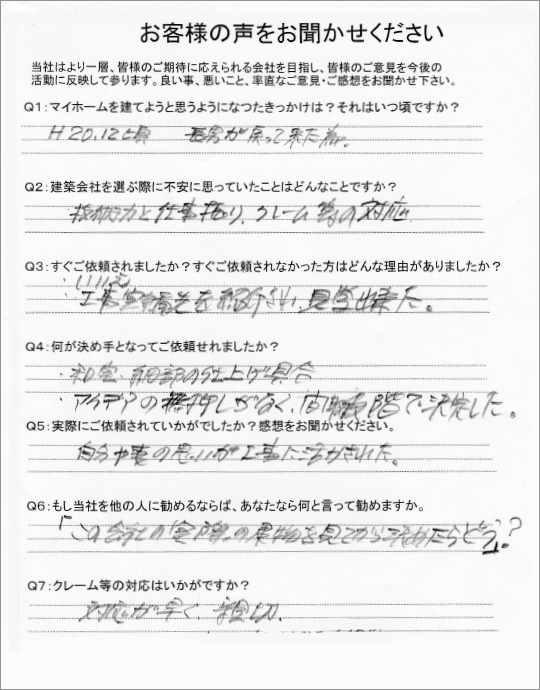 お客様の声をお聞かせください
当社はより一層、皆様のご期待に応えられる会社を目指し、皆様のご意見を今後の
活動に反映して参ります。良い事、悪いこと、率直なご意見・ご感想をお聞かせ下さい。
Q1：マイホームを建てようと思うようになつたきっかけは？それはいつ頃ですか？
H20.12頃 長男が戻って来た為。
Q2：建築会社を選ぶ際に不安に思っていたことはどんなことですか？
技術力と仕事振り、クレーム等の対応
Q3：すぐご依頼されましたか？すぐご依頼されなかった方はどんな理由がありましたか？
・いいえ
・工事実績先を紹介され、見学出来た。
Q4：何が決め手となってご依頼せれましたか？
・和室・細部の仕上げ具合
・アイデアの押しがなく、段階で決定した。
Q5：実際にご依頼されていかがでしたか？感想をお聞かせください。
自分や妻の思いが工事に活かされた。
Q6：もし当社を他の人に勧めるならば、あなたなら何と言って勧めますか。
「この会社の「実際」の建物を見てから決めたらどう？」
Q7：クレーム等の対応はいかがですか？
対応が早く、親切。